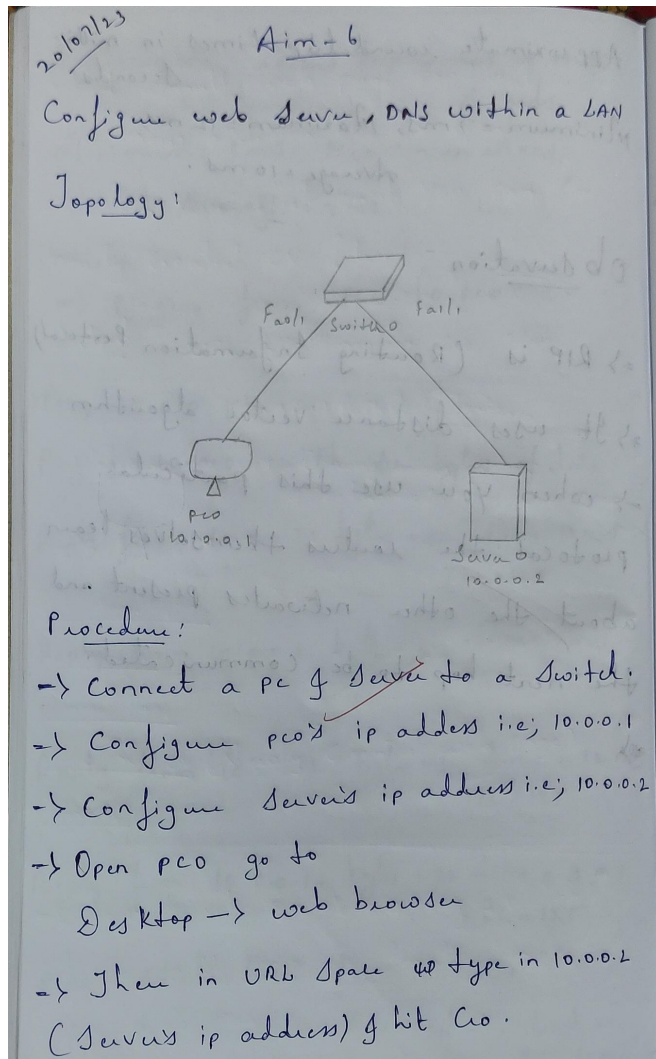 20/07/23
Aim-6
Configure web server, DNS within a LAN
Topology:
Fa0/1 Switch 0 Fa1/1
PC0
10.0.0.1
Server 0
10.0.0.2
Procedure:
-> Connect a pc & Server to a Switch.
-> Configure pc0's ip addess i.e; 10.0.0.1
-> Configure Server's ip address i.e; 10.0.0.2
-> Open pc0 go to
Desktop -> web browser
-> Then in URL Spale type in 10.0.0.2
(Server's ip address) & hit Go.